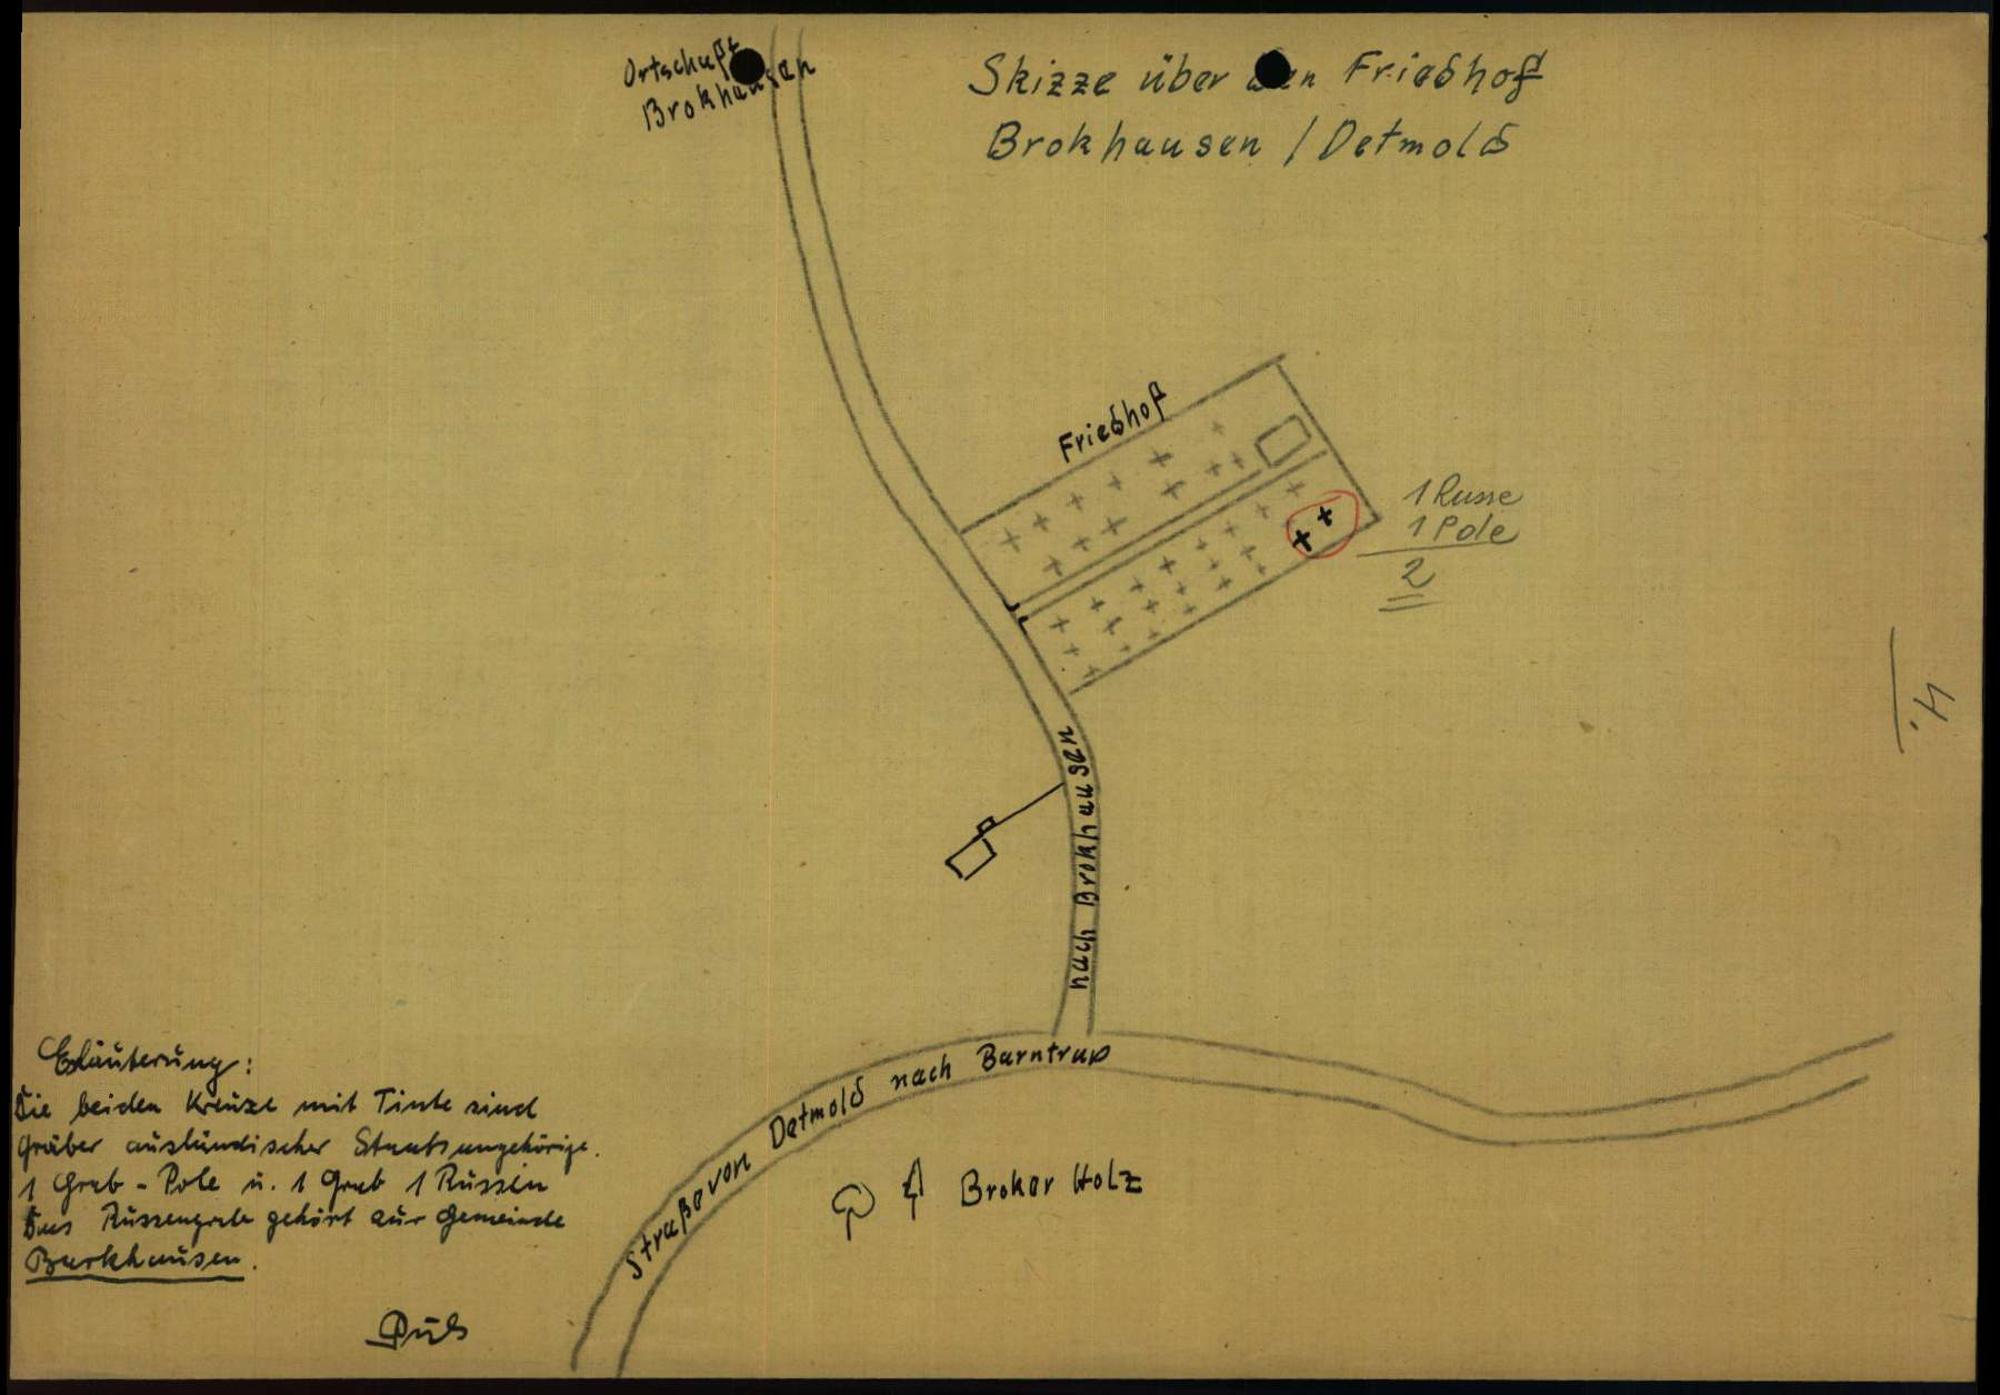 Ortschaft
Brokhausen
Skizze über den Friedhof
Brokhausen / Detmold
Friedhof
1 Russe
1 Pole
2
4.
nach Brokhausen
Straße von Detmold nach Barntrup
Broker Holz
Erläuterung:
Die beiden Kreuze mit Tinte sind
Gräber ausländischer Staatsangehörige.
1 Grab - Pole u. 1 Grab 1 Russin
Das Russengrab gehört zur Gemeinde
Barkhausen.